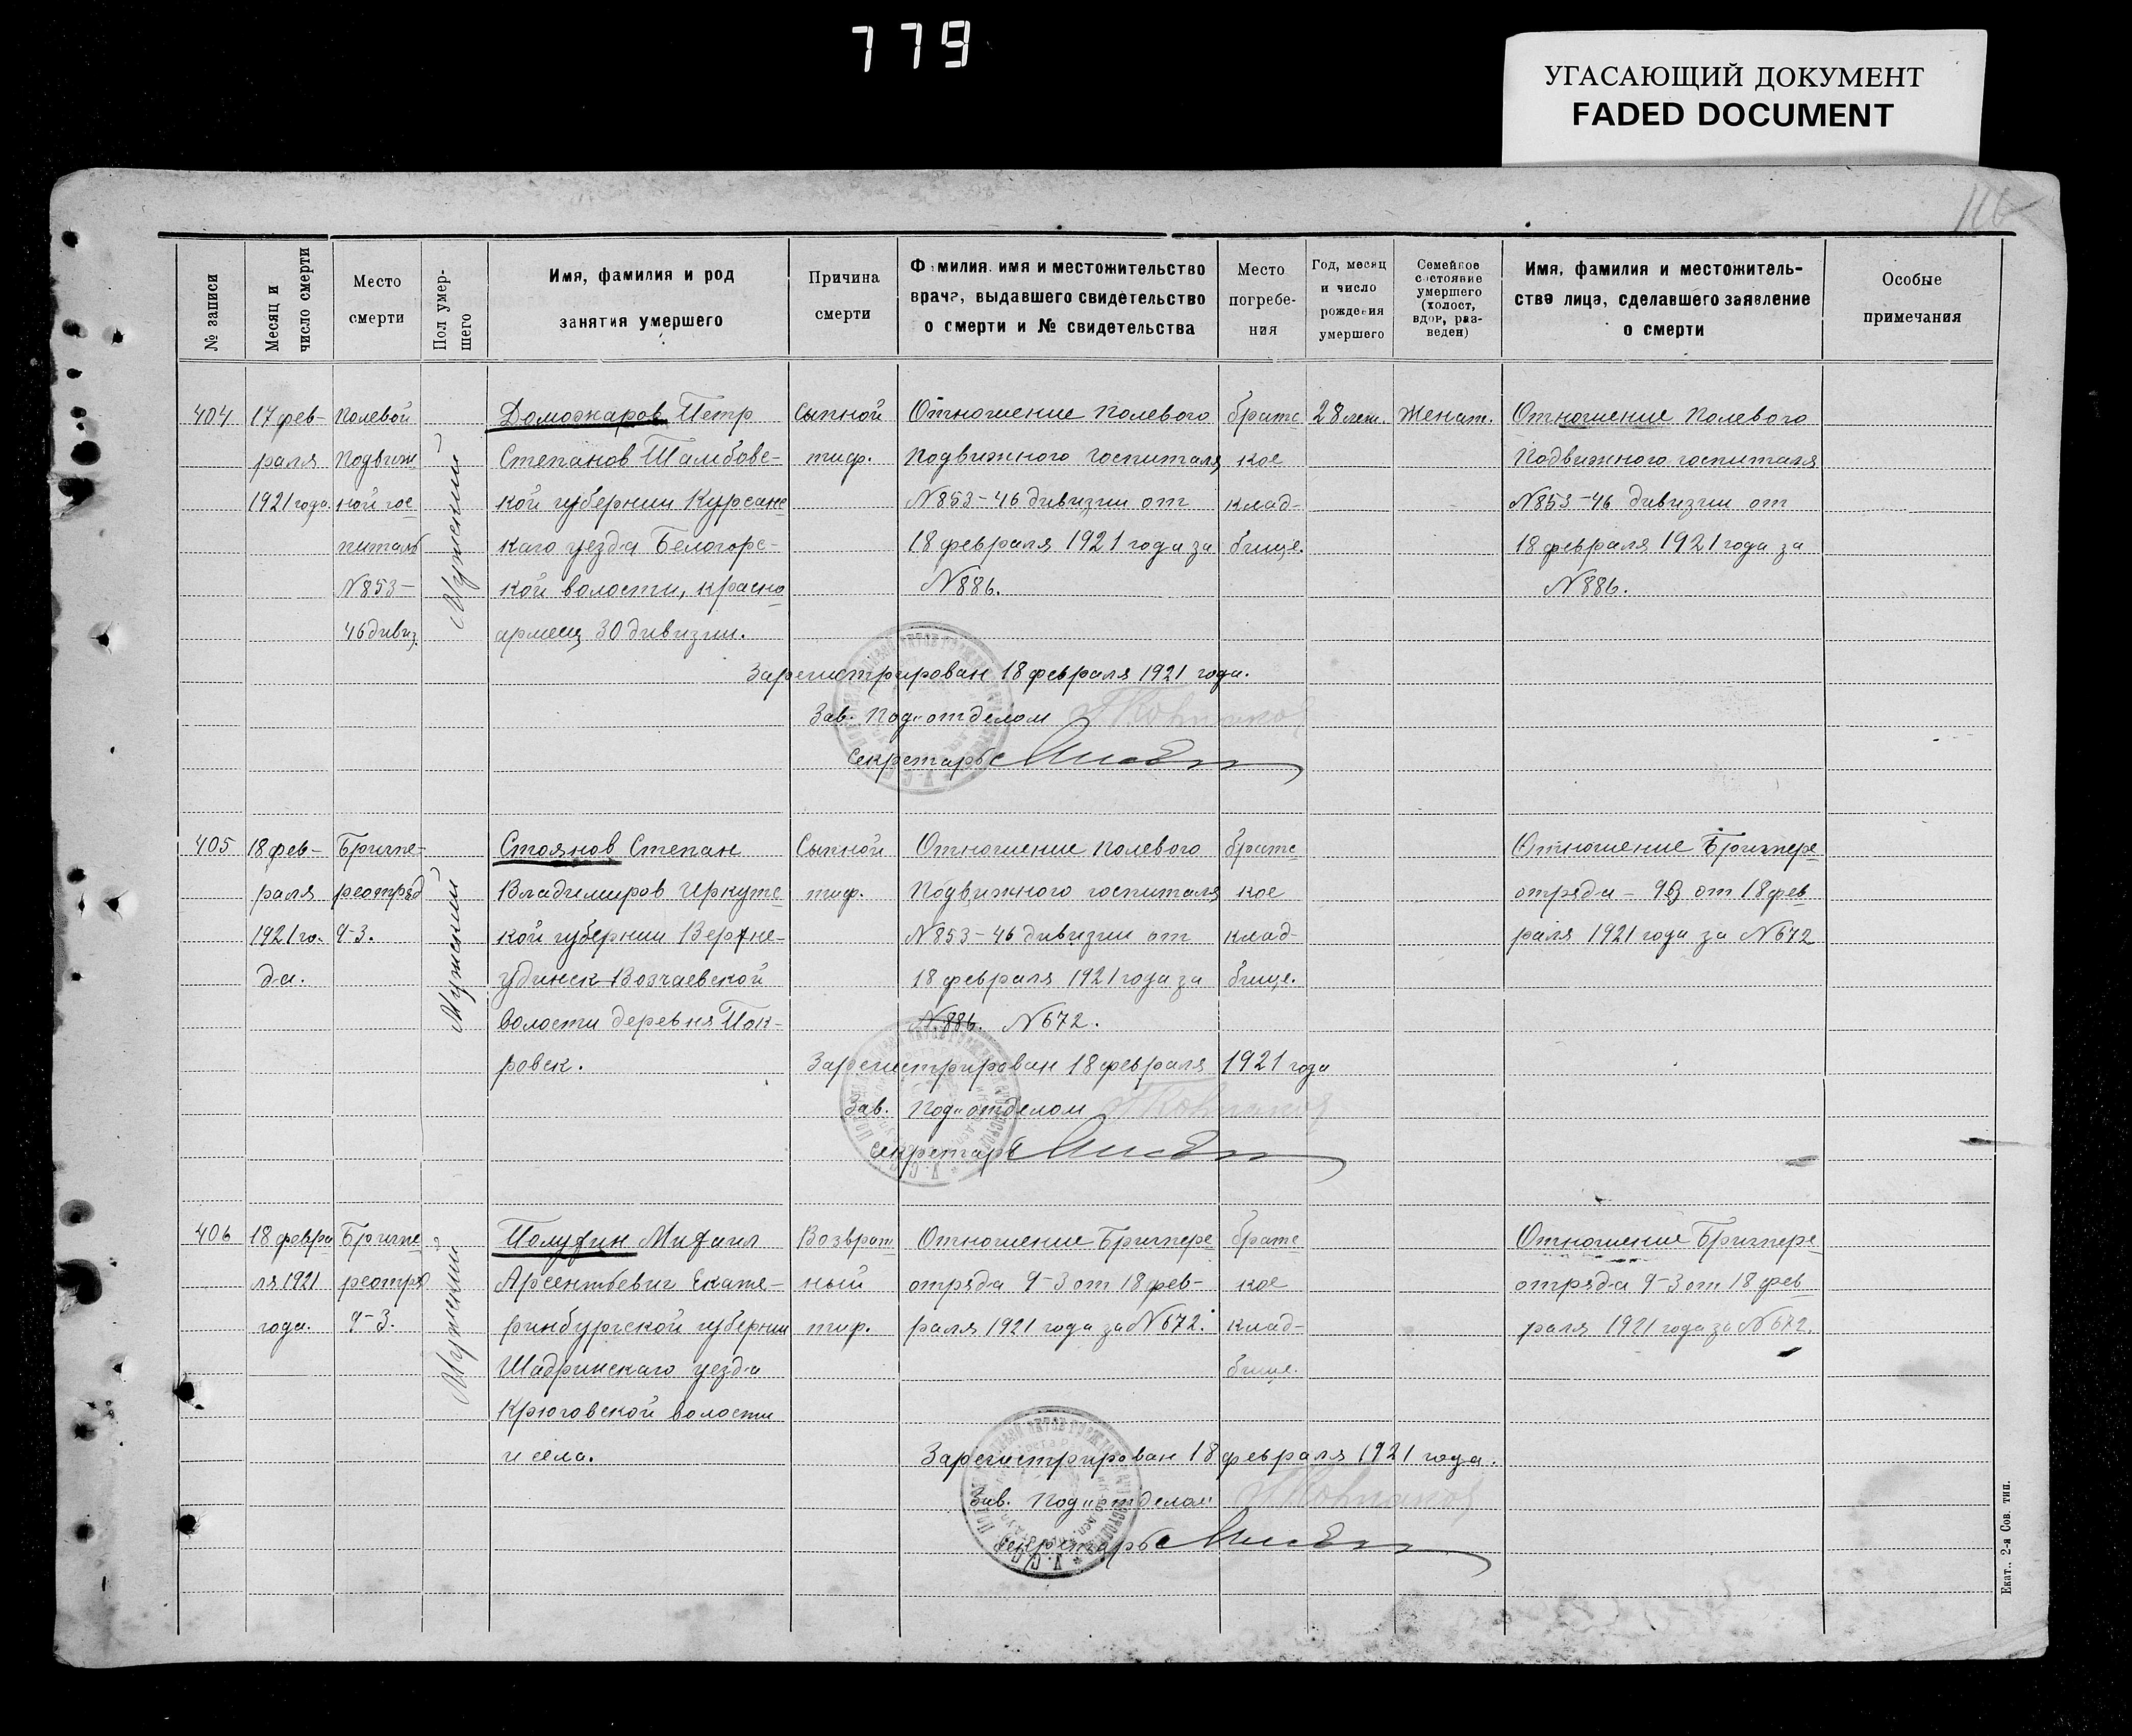 779
УГАСАЮЩИЙ ДОКУМЕНТ
FADED DOCUMENT
116
№ записи
Месяц и
число смерти
Место
смерти
Пол умер-
шего
Имя, фамилия и род
занятия умершего
Причина
смерти
Фамилия, имя и местожительство
врача, выдавшего свидетельство
о смерти и № свидетельства
Место
погребе-
ния
Год, месяц
и число
рождения
умершего
Семейное
состояние
умершего
(холост,
вдов, раз-
веден)
Имя, фамилия и местожитель-
ство лица, сделавшего заявление
о смерти
Особые
примечания
404
17 фев-
раля
1921 года.
Полевой
Подвиж
ной гос
питаль
N853-
46 дивиз.
Мужской
Доможаров Петр
Степанов Тамбовс-
кой губернии Курсанс
каго уезда Белогорс-
кой волости, красно
армеец 30 дивизии.
Сыпной
тиф.
Отношение Полевого
Подвижного госпиталя
N853-46 дивизии от
18 февраля 1921 года за
N886.
братс
кое
клад-
бище.
28 лет.
Женат.
Отношение Полевого
Подвижного госпиталя
N853-46 дивизии от
18 февраля 1921 года за
N886.
Зарегистрирован 18 февраля 1921 года.
Зав. Под-отделом
Секретарь
405
18 фев-
раля
1921 го-
да.
Бригпе-
реотряд
9-3.
Мужской
Стоянов Степан
Владимиров Иркутс
кой губернии Верхне-
удинск Возчаевской
волости деревня Пок-
ровск.
Сыпной
тиф.
Отношение Полевого
Подвижного госпиталя
N853-46 дивизии от
18 февраля 1921 года за
N886. N672.
братс
кое
клад-
бище.
Отношение Бригпере
отряда - 93 от 18 фев
раля 1921 года за N672
Зарегистрирован 18 февраля 1921 года
Зав. Под-отделом
Секретарь
406
18 февра
ля 1921
года.
Бригпе
реотряд
9-3.
Мужской
Полухин Михаил
Арсентьевич Екате-
ринбургской губернии
Шадринскаго уезда
Крюговской волости
и села.
Возврат
ный
тиф.
Отношение Бригпере
отряда 9-3 от 18 фев-
раля 1921 года за N672.
братс
кое
клад-
бище.
Отношение Бригпере
отряда 9-3 от 18 фев
раля 1921 года за N672.
Зарегистрирован 18 февраля 1921 года.
Зав. Под-отделом
Секретарь
Екат., 2-я Сов. тип.